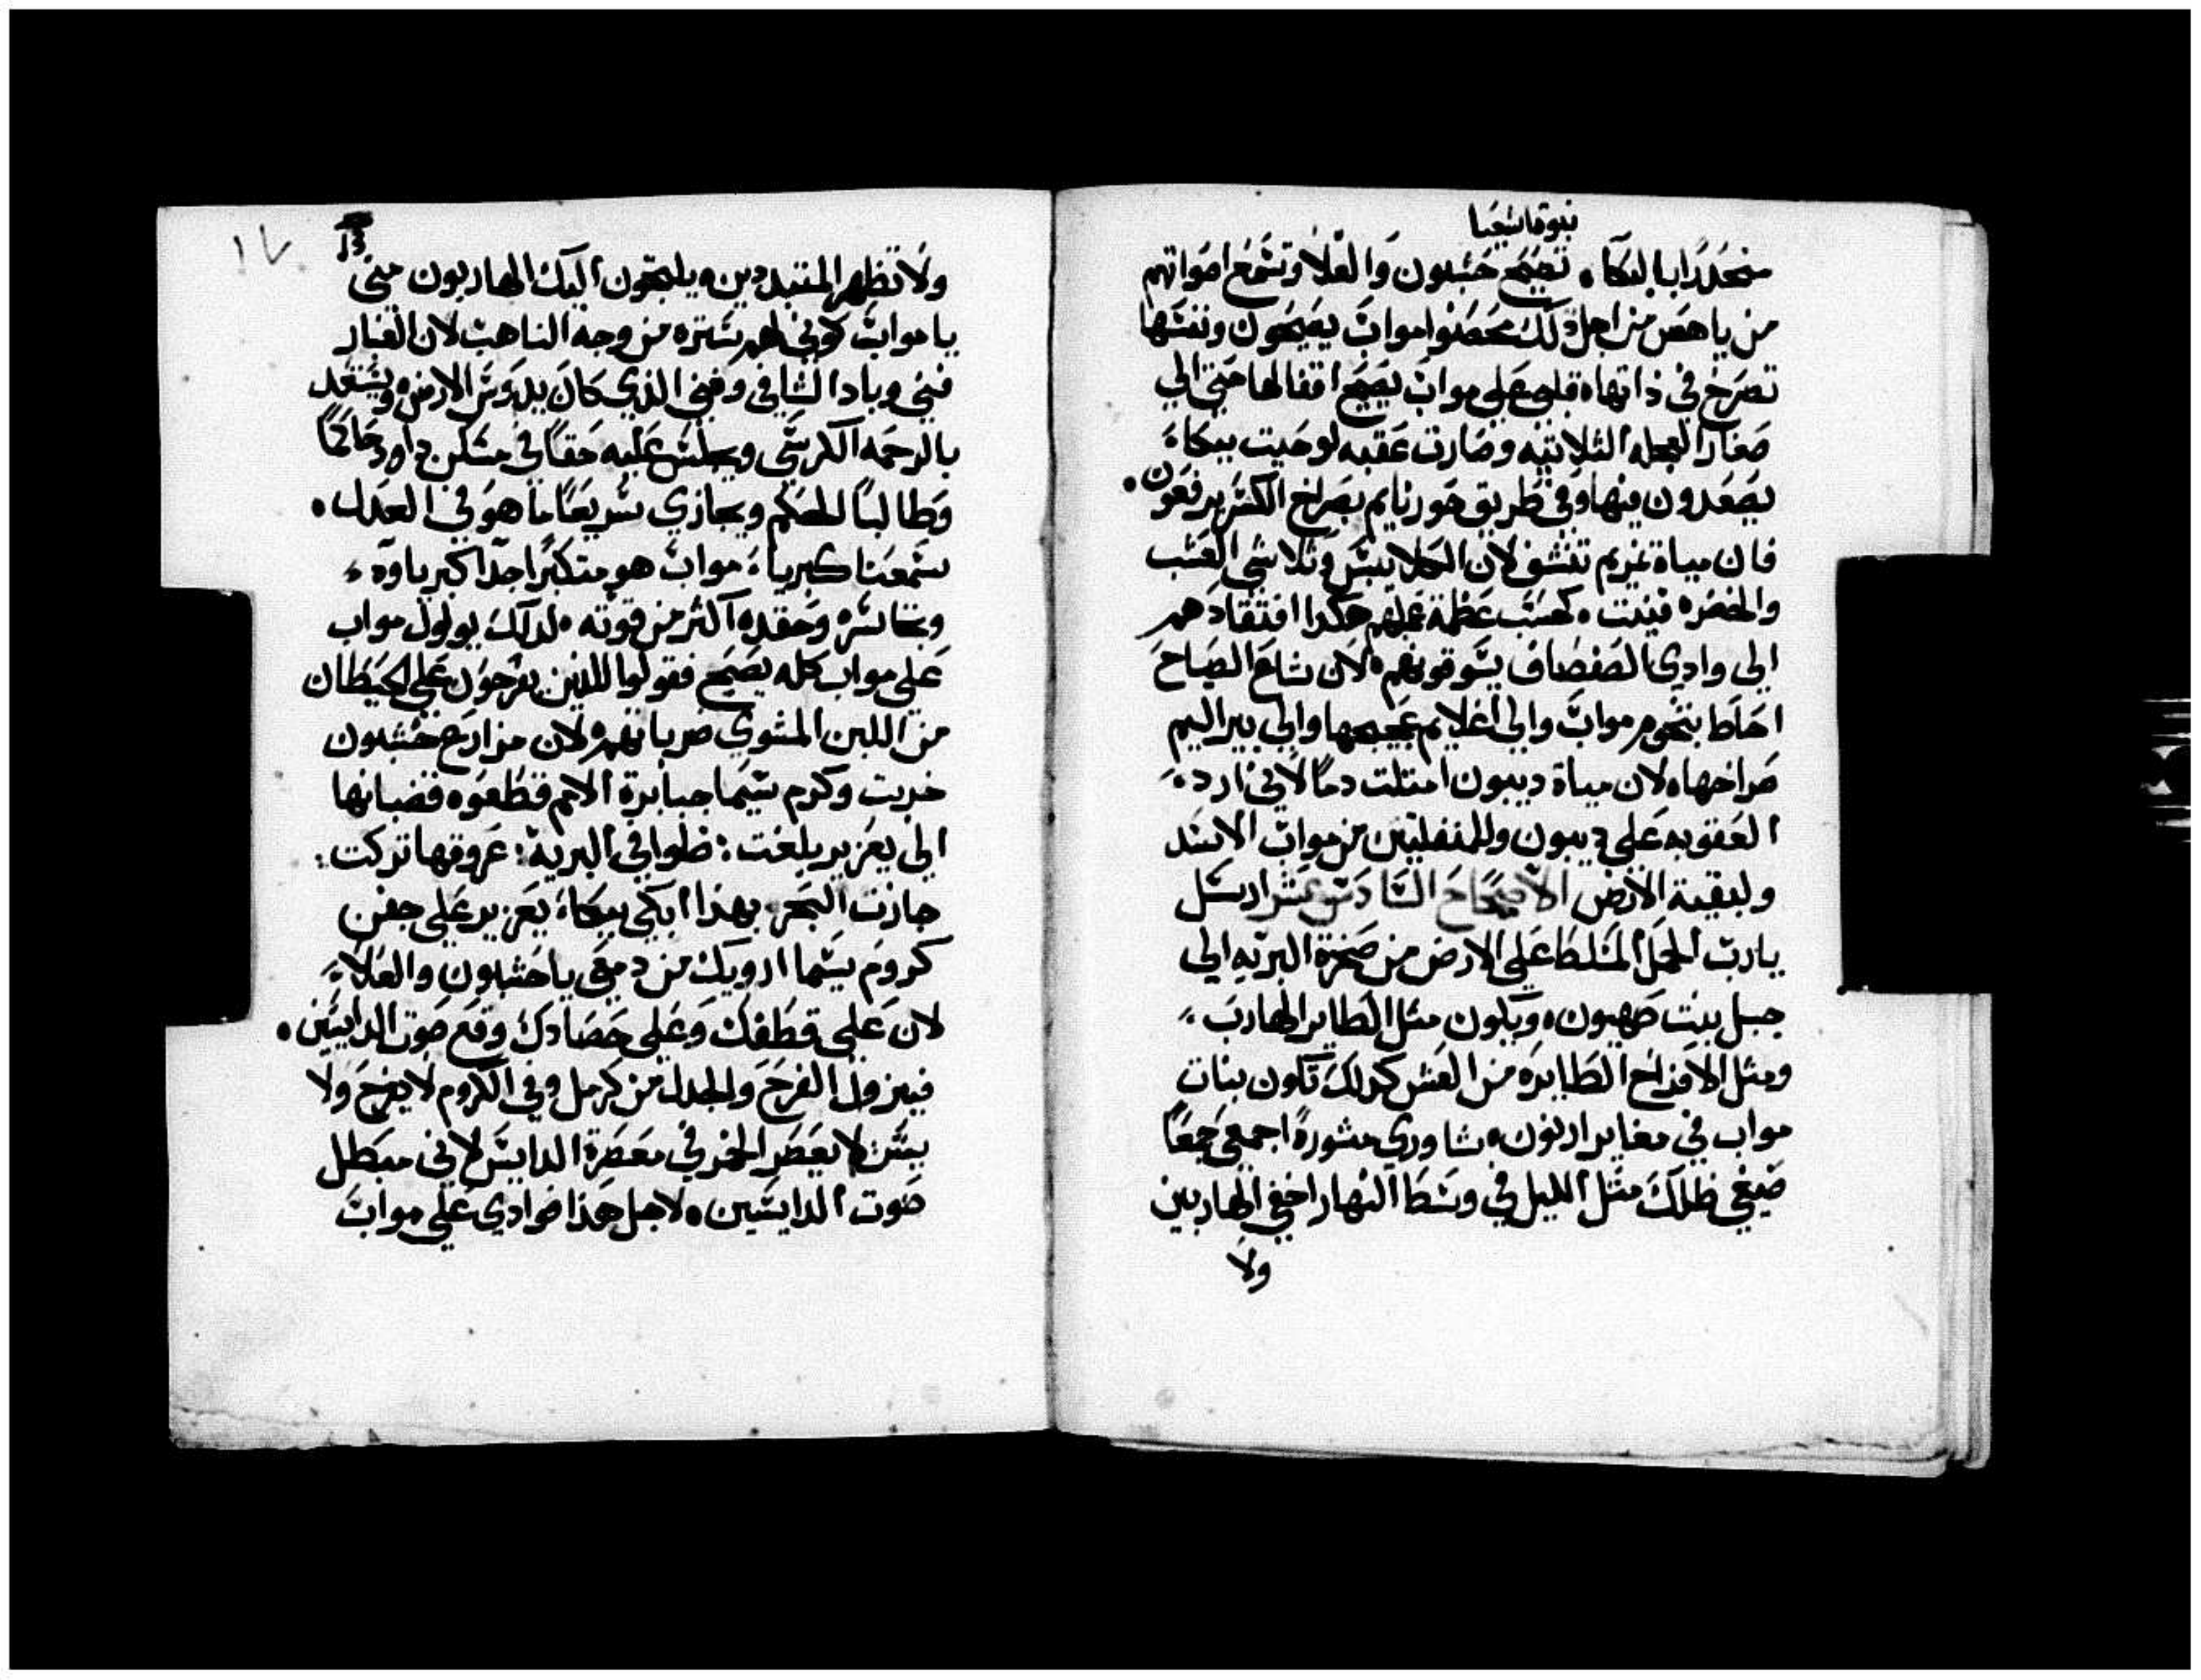 نبوة اشعيا
منحدرًا بالبكاء. تصيح حشبون والعلا وتسمع اصواتهم
من ياهص من اجل ذلك محصنوا مواب يصيحون ونفسها
تصرخ في ذاتها قلبي علي مواب يصيح اقفالها حتي الي
صغار العجله الثلاثيه وصارت عقبه لوحيت ببكاء
يصعدون منها وفي طريق حورنايم بصراخ الكسر يرفعون.
فان مياة نمريم تنشف لان الكلا يبس وتلاشي العشب
والخضره فنيت. كحسب عظمة عملهم هكدا افتقادهم
الي وادي الصفصاف يسوقونهم لان شاع الصياح
احاط بتخوم مواب والي اغلايم عجيجها والي بير اليم
صراخها لان مياة ديبون امتلت دمًا لاني ازاد.
العقوبه علي ديبون وللمنفلتين من مواب الاسد
ولبقية الارض الاصحاح السادس عشر ارسل
يا رب الحمل المسلط علي الارض من صخرة البريه الي
جبل بنت صهيون. ويكون مثل الطاير الهارب
ومثل الافراخ الطايره من العش كدلك تكون بنات
مواب في معابر ارنون. شاوري مشورة اجمعي جمعًا
ضعي ظلك مثل الليل في وسط النهار اخفي الهاربين
ولا
١٧
ولا تظهر المتبددين. يلبثون اليك الهاربون مني
يا مواب كوني لهم ستره من وجه الناهب لان الغبار
فني وباد الشاقي وفني الذي كان يدوس الارض ويستعد
بالرحمه الكرسي ويجلس عليه حقًا في مسكن داود حاكمًا
وطالبًا الحكم ويجازي سريعًا ما هو في العدل.
سمعنا كبرياء مواب هو متكبرًا جدًا كبرياوه
وتجاسره وحقده اكثر من قوته. لدلك يولول مواب
علي مواب كله يصيح فقولوا للذين يفرحون علي الحيطان
من اللبن المشوي ضرباتهم لان مزارع حشبون
خربت وكرم سيما جبابرة الامم قطعوه قضبانها
الي يعزير بلغت: ضلوا في البرية: عروقها تركت:
جازت البحر بهذا ابكي ببكاء يعزير علي جفن
كروم سيما ارويك من دمعي يا حشبون والعلاء
لان علي قطفك وعلي حصادك وقع صوت الدايسين.
فيزول الفرح والجدل من كرمل وفي الكروم لا يفرح ولا
يسر لا يعصر الخمر في معصرة الدايس لاني مبطل
صوت الدايسين. لاجل هذا فوادي علي مواب